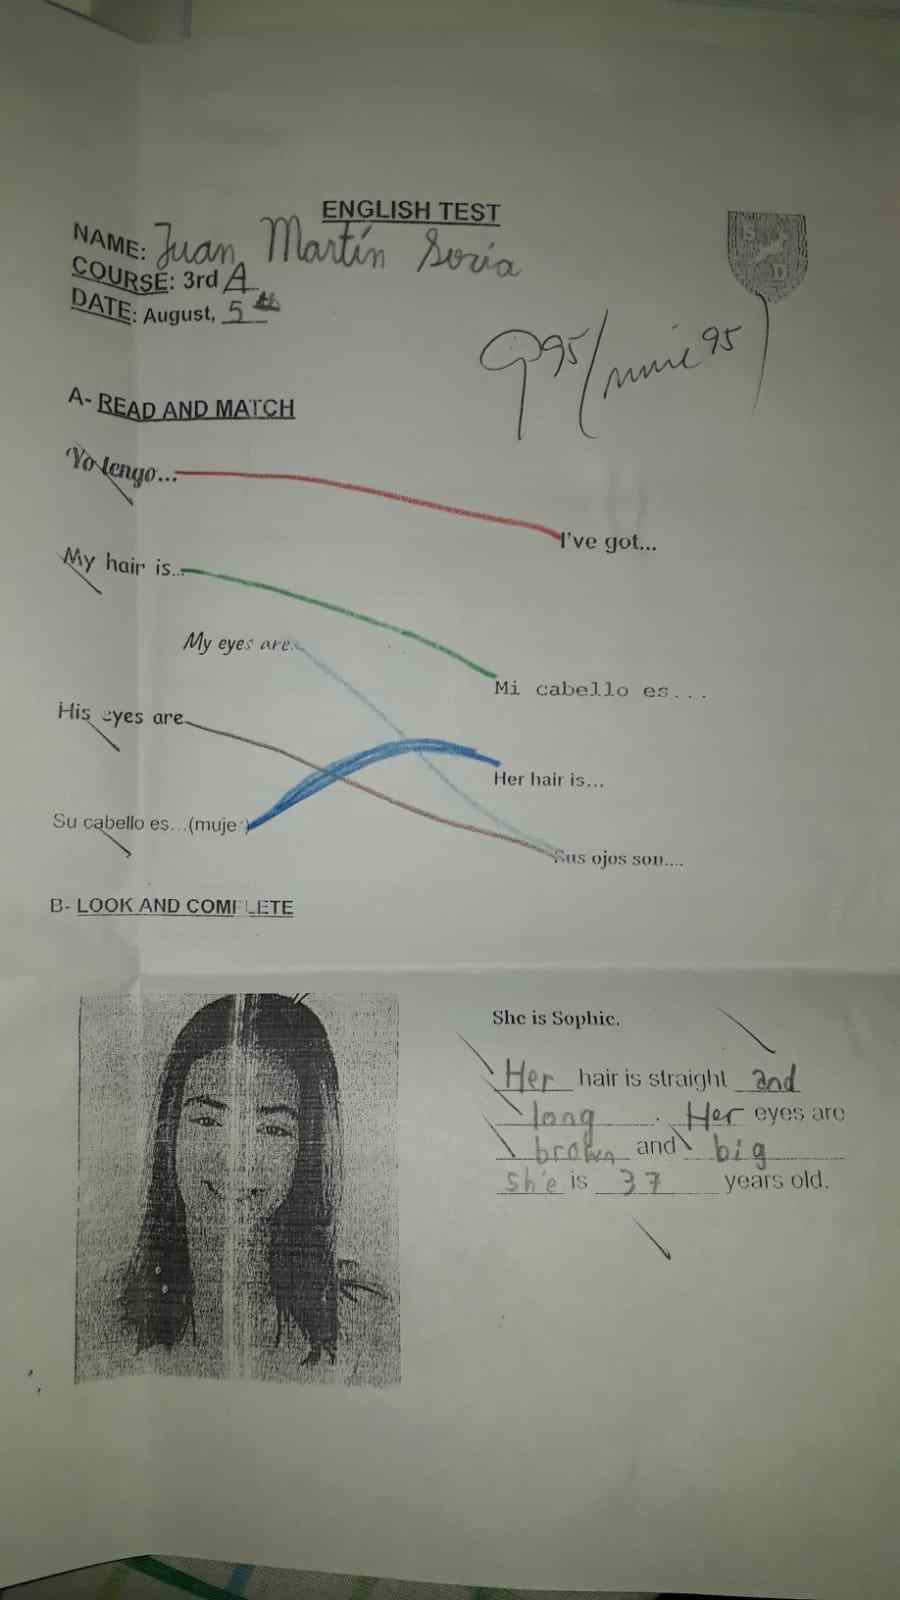 ENGLISH TEST
NAME: Juan Martín Soria
COURSE: 3rd A
DATE: August, 5th
95/ 95
A- READ AND MATCH
Yo tengo...
I've got...
My hair is...
My eyes are...
Mi cabello es...
His eyes are
Her hair is...
Su cabello es...(mujer)
Sus ojos son....
B- LOOK AND COMPLETE
She is Sophie.
Her hair is straight and
long . Her eyes are
brown and big
she is 37 years old.